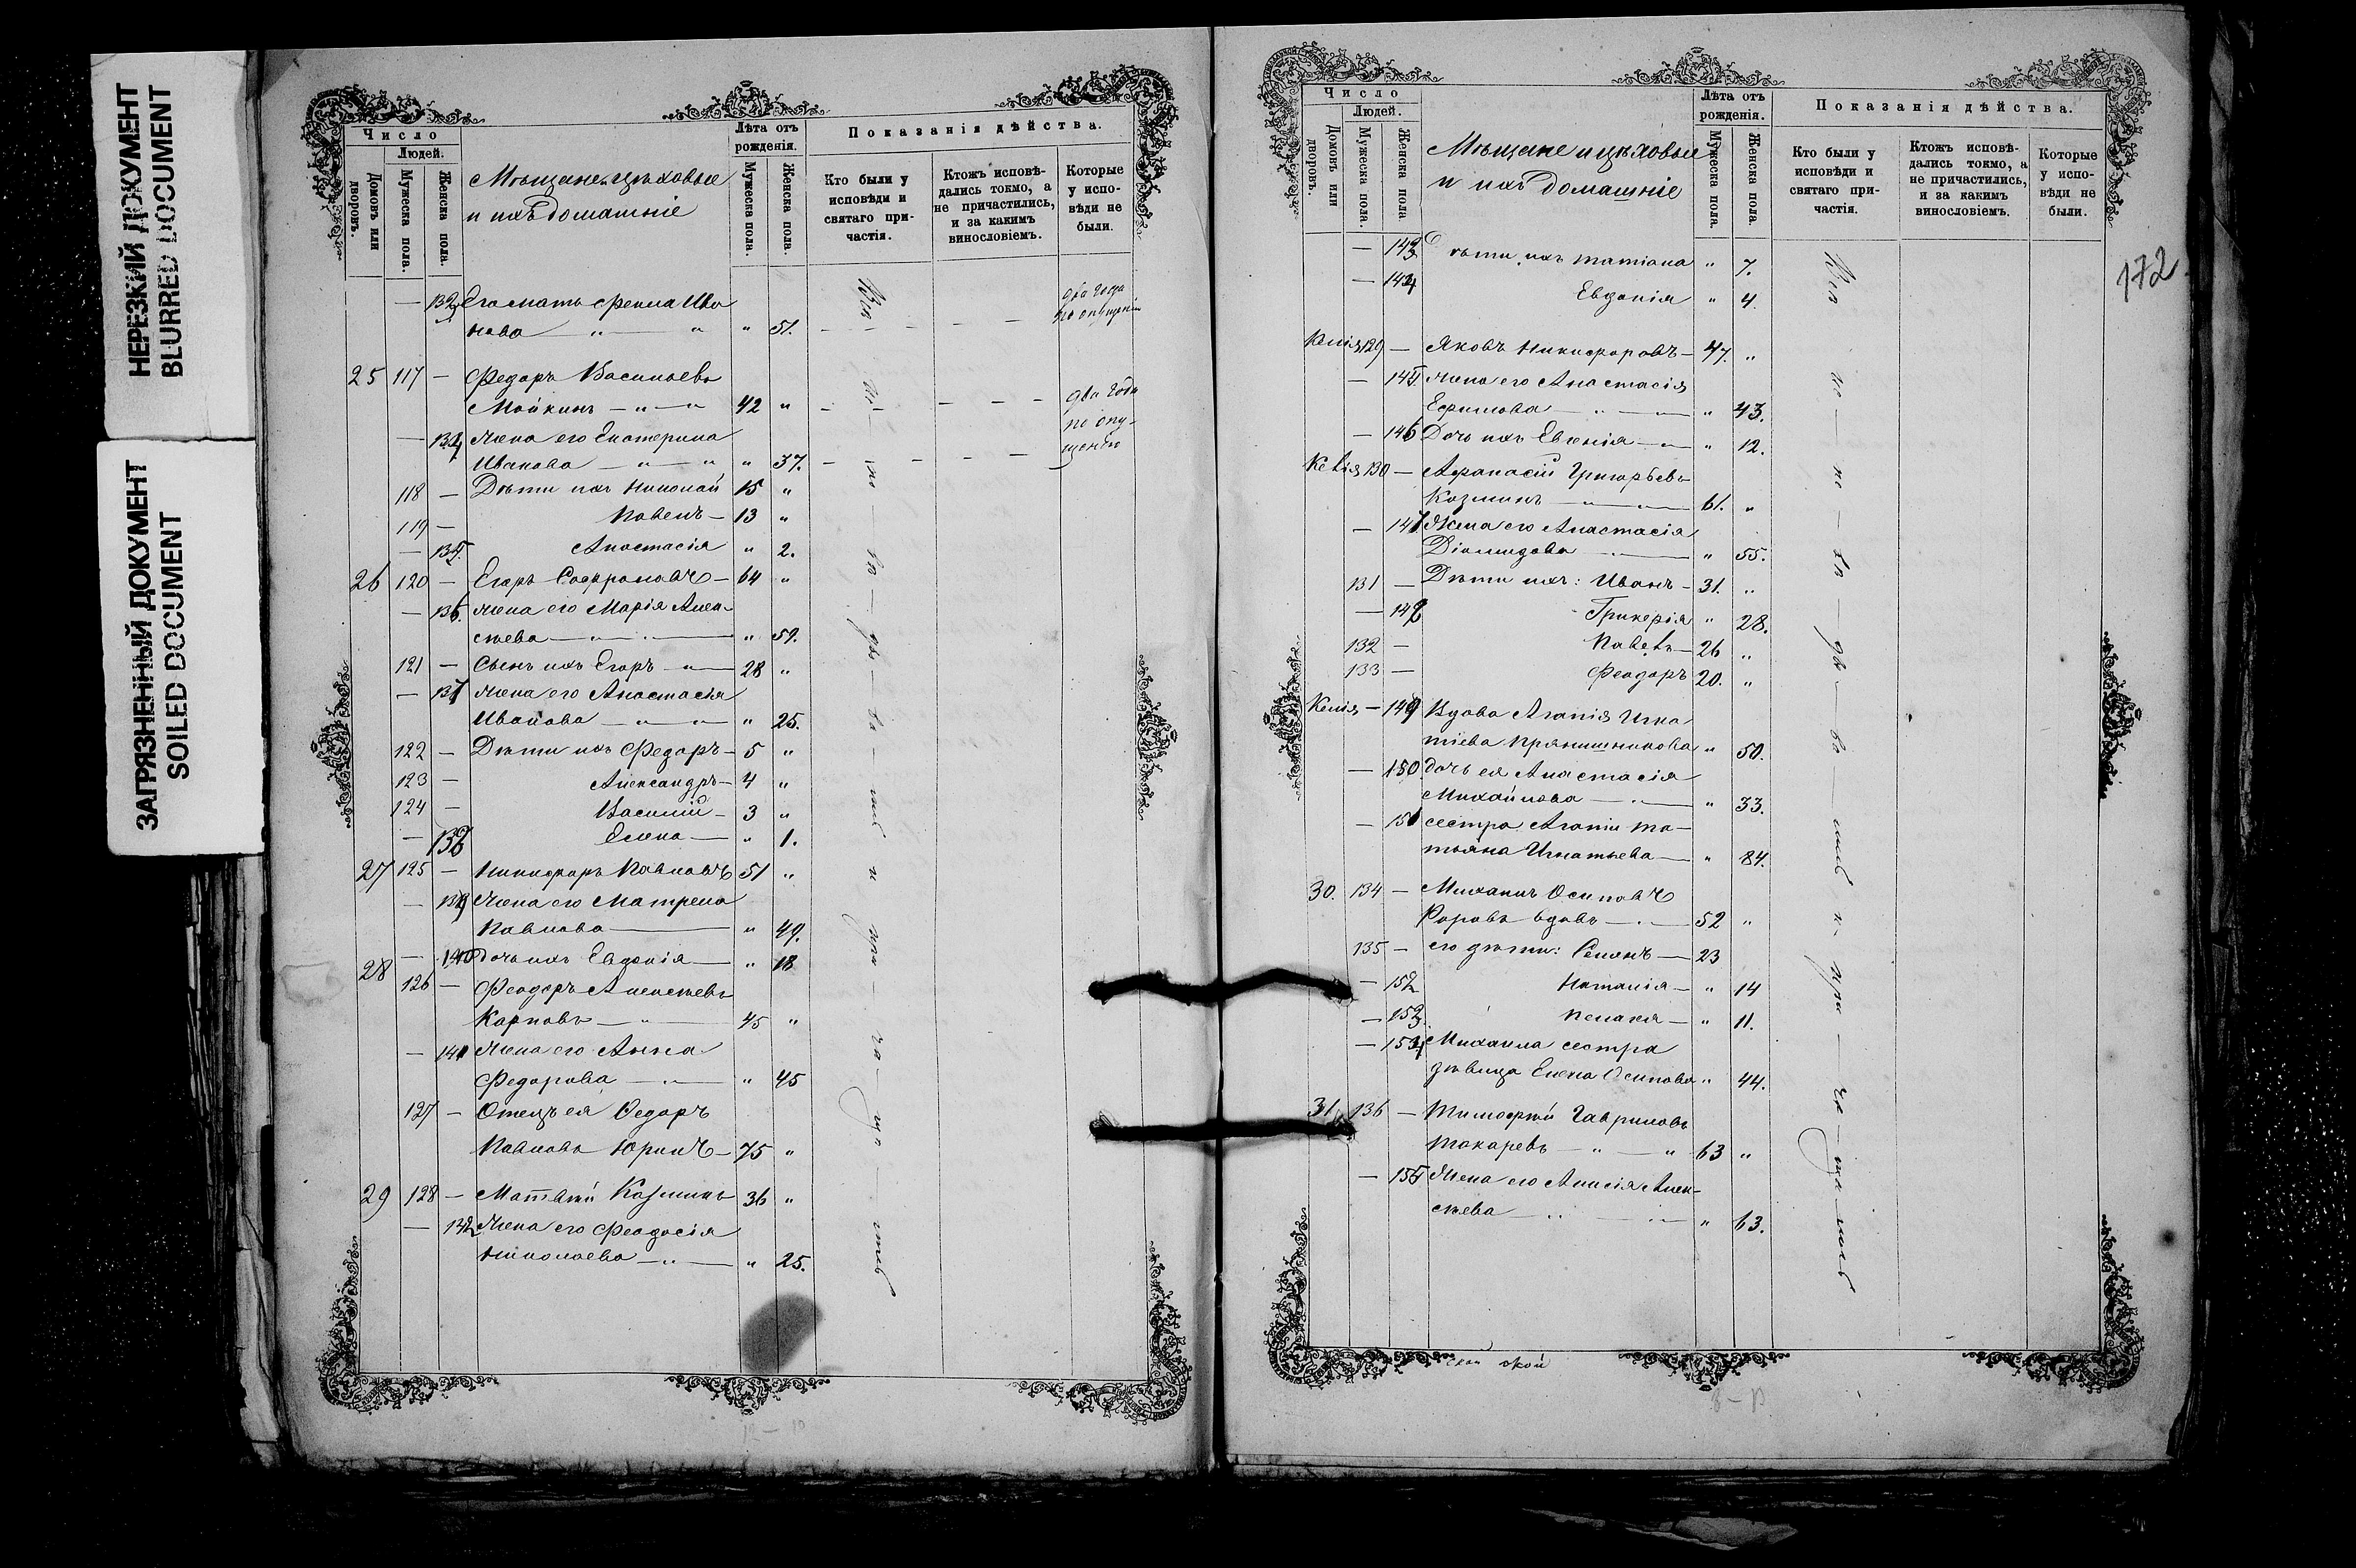 НЕРЕЗКИЙ ДОКУМЕНТ
BLURRED DOCUMENT
ЗАГРЯЗНЕННЫЙ ДОКУМЕНТ
SOILED DOCUMENT
Число
Людей.
Домовъ или дворовъ.
Мужеска пола.
Женска пола.
Мѣщане, цѣховые
и ихъ домашніе
Лѣта отъ рожденія.
Мужеска пола.
Женска пола.
Показанія дѣйства.
Кто были у исповѣди и святаго причастія.
Ктожъ исповѣдались токмо, а не причастились, и за какимъ винословіемъ.
Которые у исповѣди не были.
— 133 Его мать Фекла Ива
нова — " — " " 51. два года по опущенію
25 117 — Федоръ Васильевъ
Мойкинъ — " — " 42 " два года
— 134 Жена его Екатерина по опу-
Иванова — " — " " 37. щенію
118 — Дѣти ихъ Николай 15 "
119 — Павелъ — 13 "
— 135. Анастасія " 2.
26 120 — Егоръ Софроновъ — 64 "
— 136. Жена его Марія Алек-
сѣева — " — " 59.
121 — Сынъ ихъ Егоръ — " — 28 "
— 137 Жена его Анастасія
Иванова — " — " " 25.
122 — Дѣти ихъ Федоръ — 5 "
123 — Александръ — 4 "
124 — Василій — 3 "
— 138 Елена — " 1.
27 125 — Никифоръ Павловъ 51 "
— 139 Жена его Матрена
Павлова — " 49.
— 140 дочь ихъ Евдокія — " 18
28 126 — Феодоръ Алексѣевъ
Карповъ — " — 45 "
— 141 Жена его Анна
Федорова — " — " 45
127 — Отецъ ея Федоръ
Павловъ Юринъ — 75 "
29 128 — Матвѣй Козминъ 36 "
— 142 Жена его Феодосія
Николаева — " — " 25.
Всѣ
Число
Людей.
Домовъ или дворовъ.
Мужеска пола.
Женска пола.
Мѣщане и цѣховые
и ихъ домашніе
Лѣта отъ рожденія.
Мужеска пола.
Женска пола.
Показанія дѣйства.
Кто были у исповѣди и святаго причастія.
Ктожъ исповѣдались токмо, а не причастились, и за какимъ винословіемъ.
Которые у исповѣди не были.
172
— 143 Дѣти ихъ Татіана " 7.
— 144 Евдокія " 4.
Келія 129 — Яковъ Никифоровъ — 47. "
— 145. Жена его Анастасія
Ефимова — " — " 43.
— 146 Дочь ихъ Евгенія — " — " 12.
Келія 130 — Афанасій Григорьевъ
Козминъ — " — 61. "
— 147 Жена его Анастасія
Діомидова — " 55.
131 — Дѣти ихъ: Иванъ — 31. "
— 148 Гликерія " 28.
132 — Павелъ — 26 "
133 — Феодоръ 20. "
Келія — 149 Вдова Агапія Игна
тіева Прянишникова " 50.
— 150 дочь ея Анастасія
Михайлова — " — " 33.
— 151 сестра Агапіи Та-
тьяна Игнатьева — " 84.
30. 134 — Михаилъ Осиповъ
вдовъ — 52 "
135 — его дѣти: Семенъ — 23
— 152 Наталія — " 14
— 153. Пелагея — " 11.
— 154 Михаила сестра
дѣвица Елена Осипова " 44.
31 136 — Тимофей Гавриловъ
Токаревъ — " — " 63 "
— 155 Жена его Анисія Алек-
сѣева — " — " 63.
Всѣ